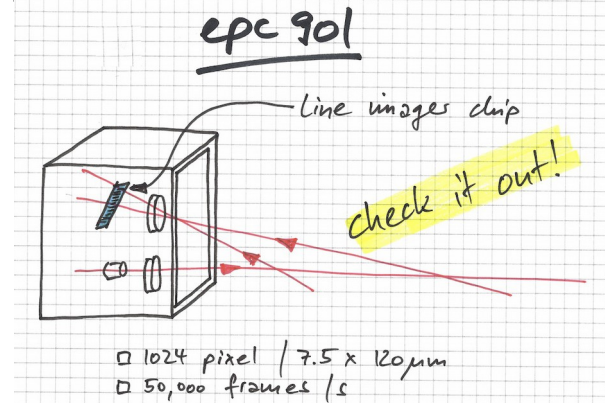 epc 901
Line imager chip
check it out!
□ 1024 pixel / 7.5 x 120 µm
□ 50,000 frames /s